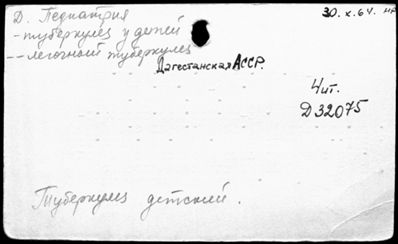 Д. Педиатрия
30.X.64. нр
- туберкулез у детей
-- легочный туберкулез
Дагестанская АССР.
4 чит.
Д32075
Туберкулез детский.